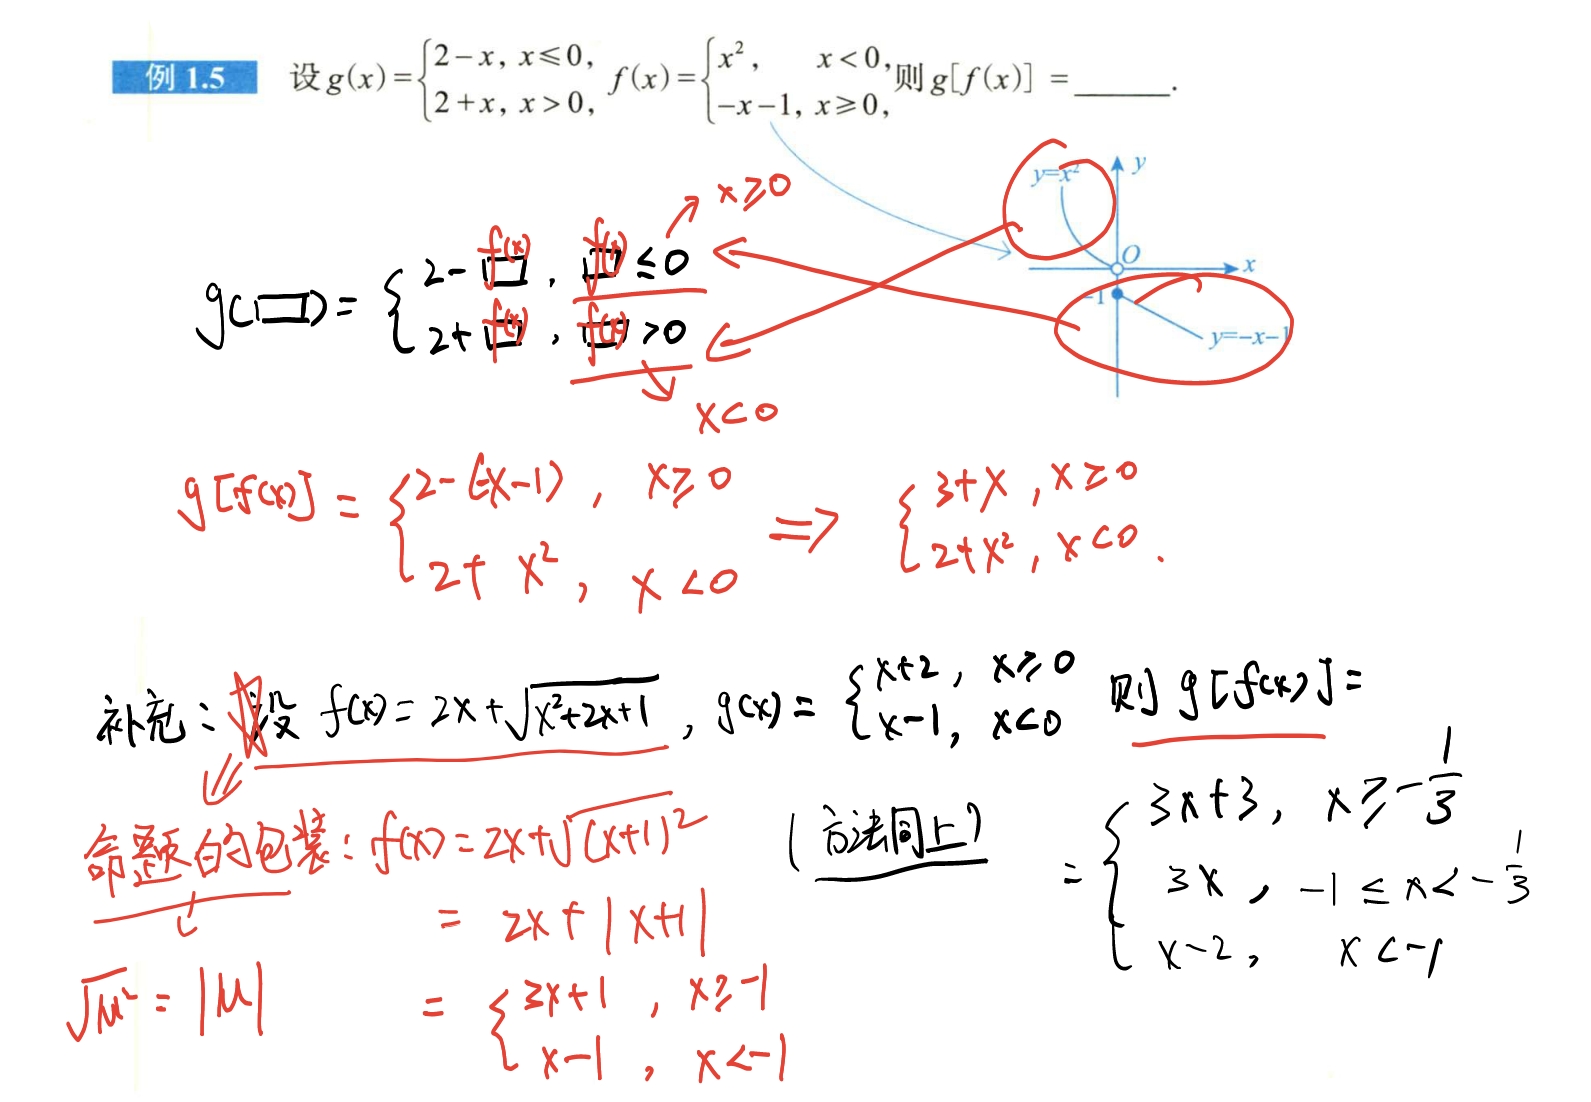 例 1.5 设 g(x)={2-x, x≤0, 2+x, x>0, f(x)={x², x<0, -x-1, x≥0, 则 g[f(x)] = ______.
y=x²
y
O
x
-1
y=-x-1
x≥0
g(□)={2-□, □≤0
2+□, □>0
f(x) f(x)
f(x) f(x)
x<0
g[f(x)]={2-(-x-1), x≥0
2+x², x<0
⇒ {3+x, x≥0
2+x², x<0.
补充: 设 f(x)=2x+√(x²+2x+1), g(x)={x+2, x≥0
x-1, x<0
则 g[f(x)]=
命题的包装: f(x)=2x+√(x+1)²
=2x+|x+1|
={3x+1, x≥-1
x-1, x<-1
√u²=|u|
(方法同上)
={3x+3, x≥-1/3
3x, -1≤x<-1/3
x-2, x<-1